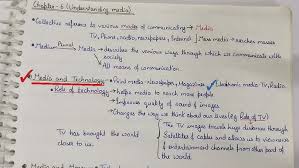 Chapter - 6 (Understanding media)
• Collective refers to various modes of communicating → Media
TV, Phone, radio, newspapers, Internet | Mass media → reaches masses
• Medium Plural Media → describes the various ways through which we communicate with society
→ All means of communication
• Media and Technology → Print media, newspapers, Magazines Electronic media TV, Radio
• Role of technology → helps media to reach more people
→ Improves quality of sound & images
→ Changes the way we think about our lives (eg Role of TV)
TV has brought the world close to us.
→ TV images travels huge distances through
Satellites & cables and allows us to view news
& entertainment channels from other part of
the world